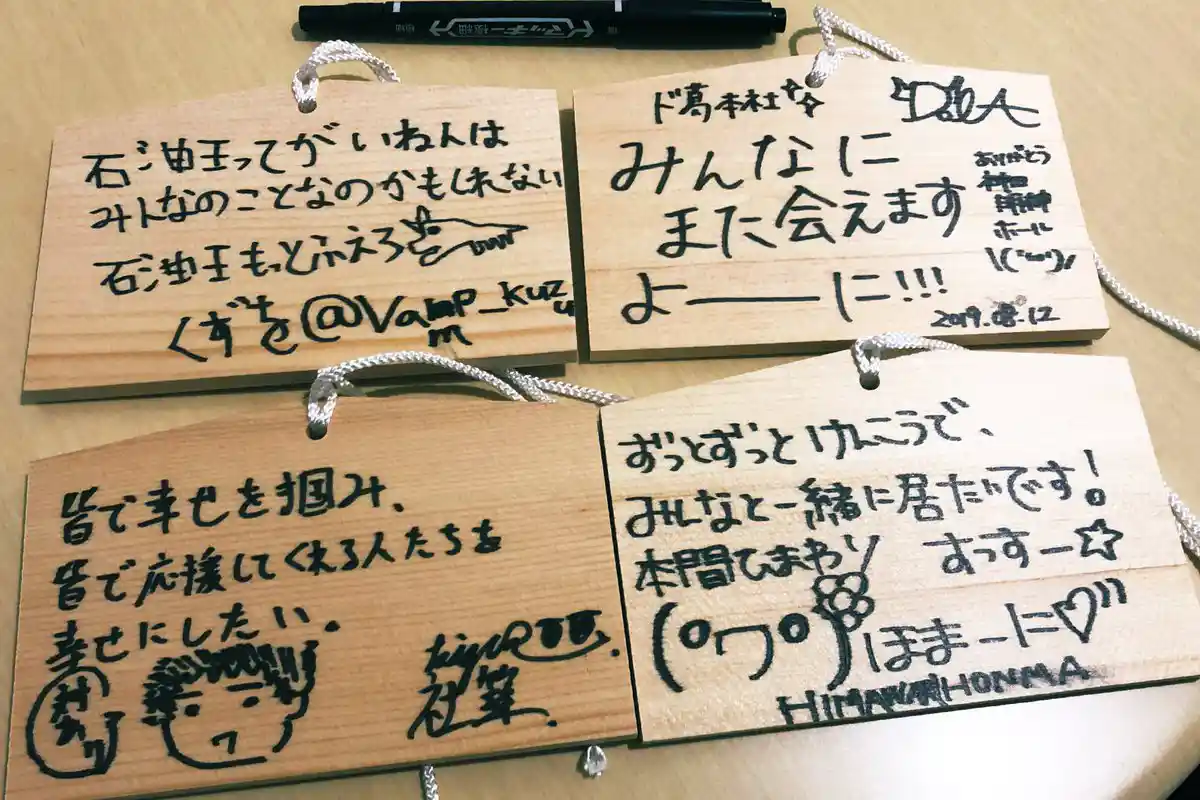 マッキー極細
石油王ってがいねんは
みんなのことなのかもしれない
石油王もっとふえろ
くずを@Vamp_kuzu
m
ド葛本社
みんなに
また会えます
よーーーに!!!
ありがとう
神田
明神
ホール
2019.08.12
皆で幸せを掴み、
皆で応援してくれる人たちを
幸せにしたい。
社築.
ずっとずっとけんこうで、
みんなと一緒に居たいです!
本間ひまわり すっすー☆
(°ワ°) ほまーに♡"
HIMAWARI HONMA